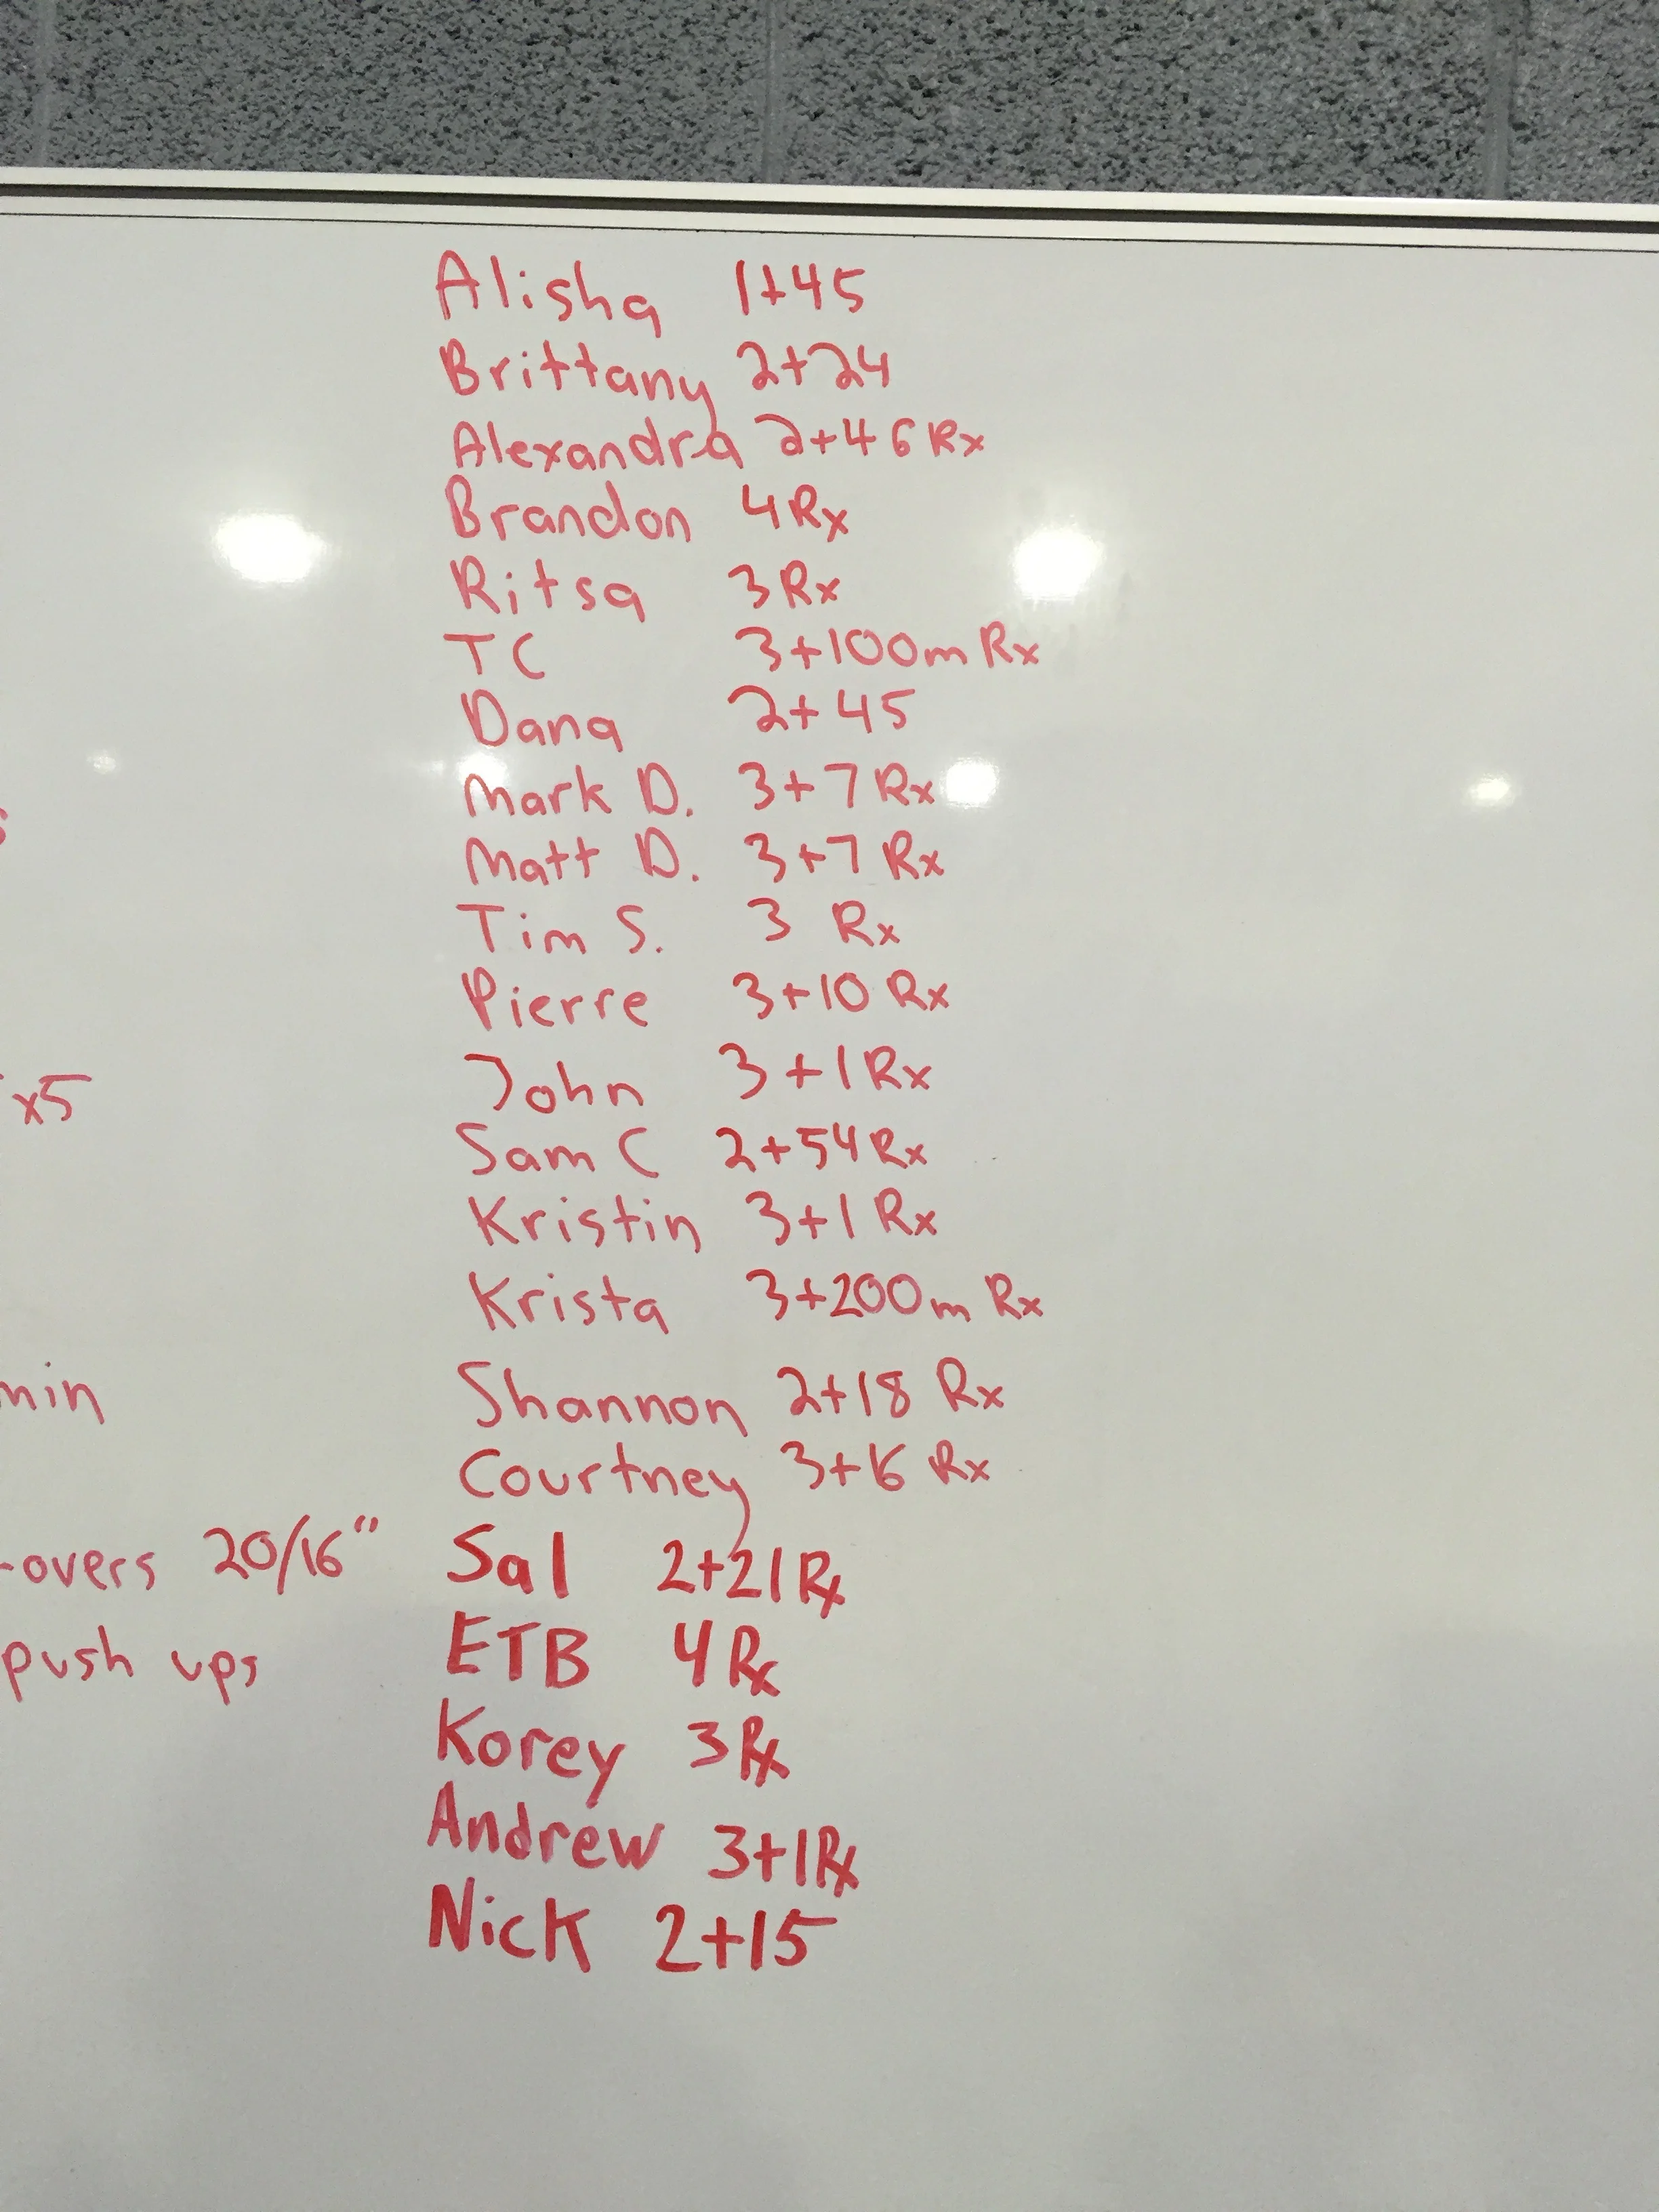 Alisha 1+45
Brittany 2+24
Alexandra 2+46 Rx
Brandon 4 Rx
Ritsa 3 Rx
TC 3+100m Rx
Dana 2+45
Mark D. 3+7 Rx
Matt D. 3+7 Rx
Tim S. 3 Rx
Pierre 3+10 Rx
John 3+1 Rx
x5
Sam C 2+54 Rx
Kristin 3+1 Rx
Krista 3+200m Rx
min
Shannon 2+18 Rx
Courtney 3+16 Rx
-overs 20/16"
Sal 2+21 Rx
push ups
ETB 4 Rx
Korey 3 Rx
Andrew 3+1 Rx
Nick 2+15